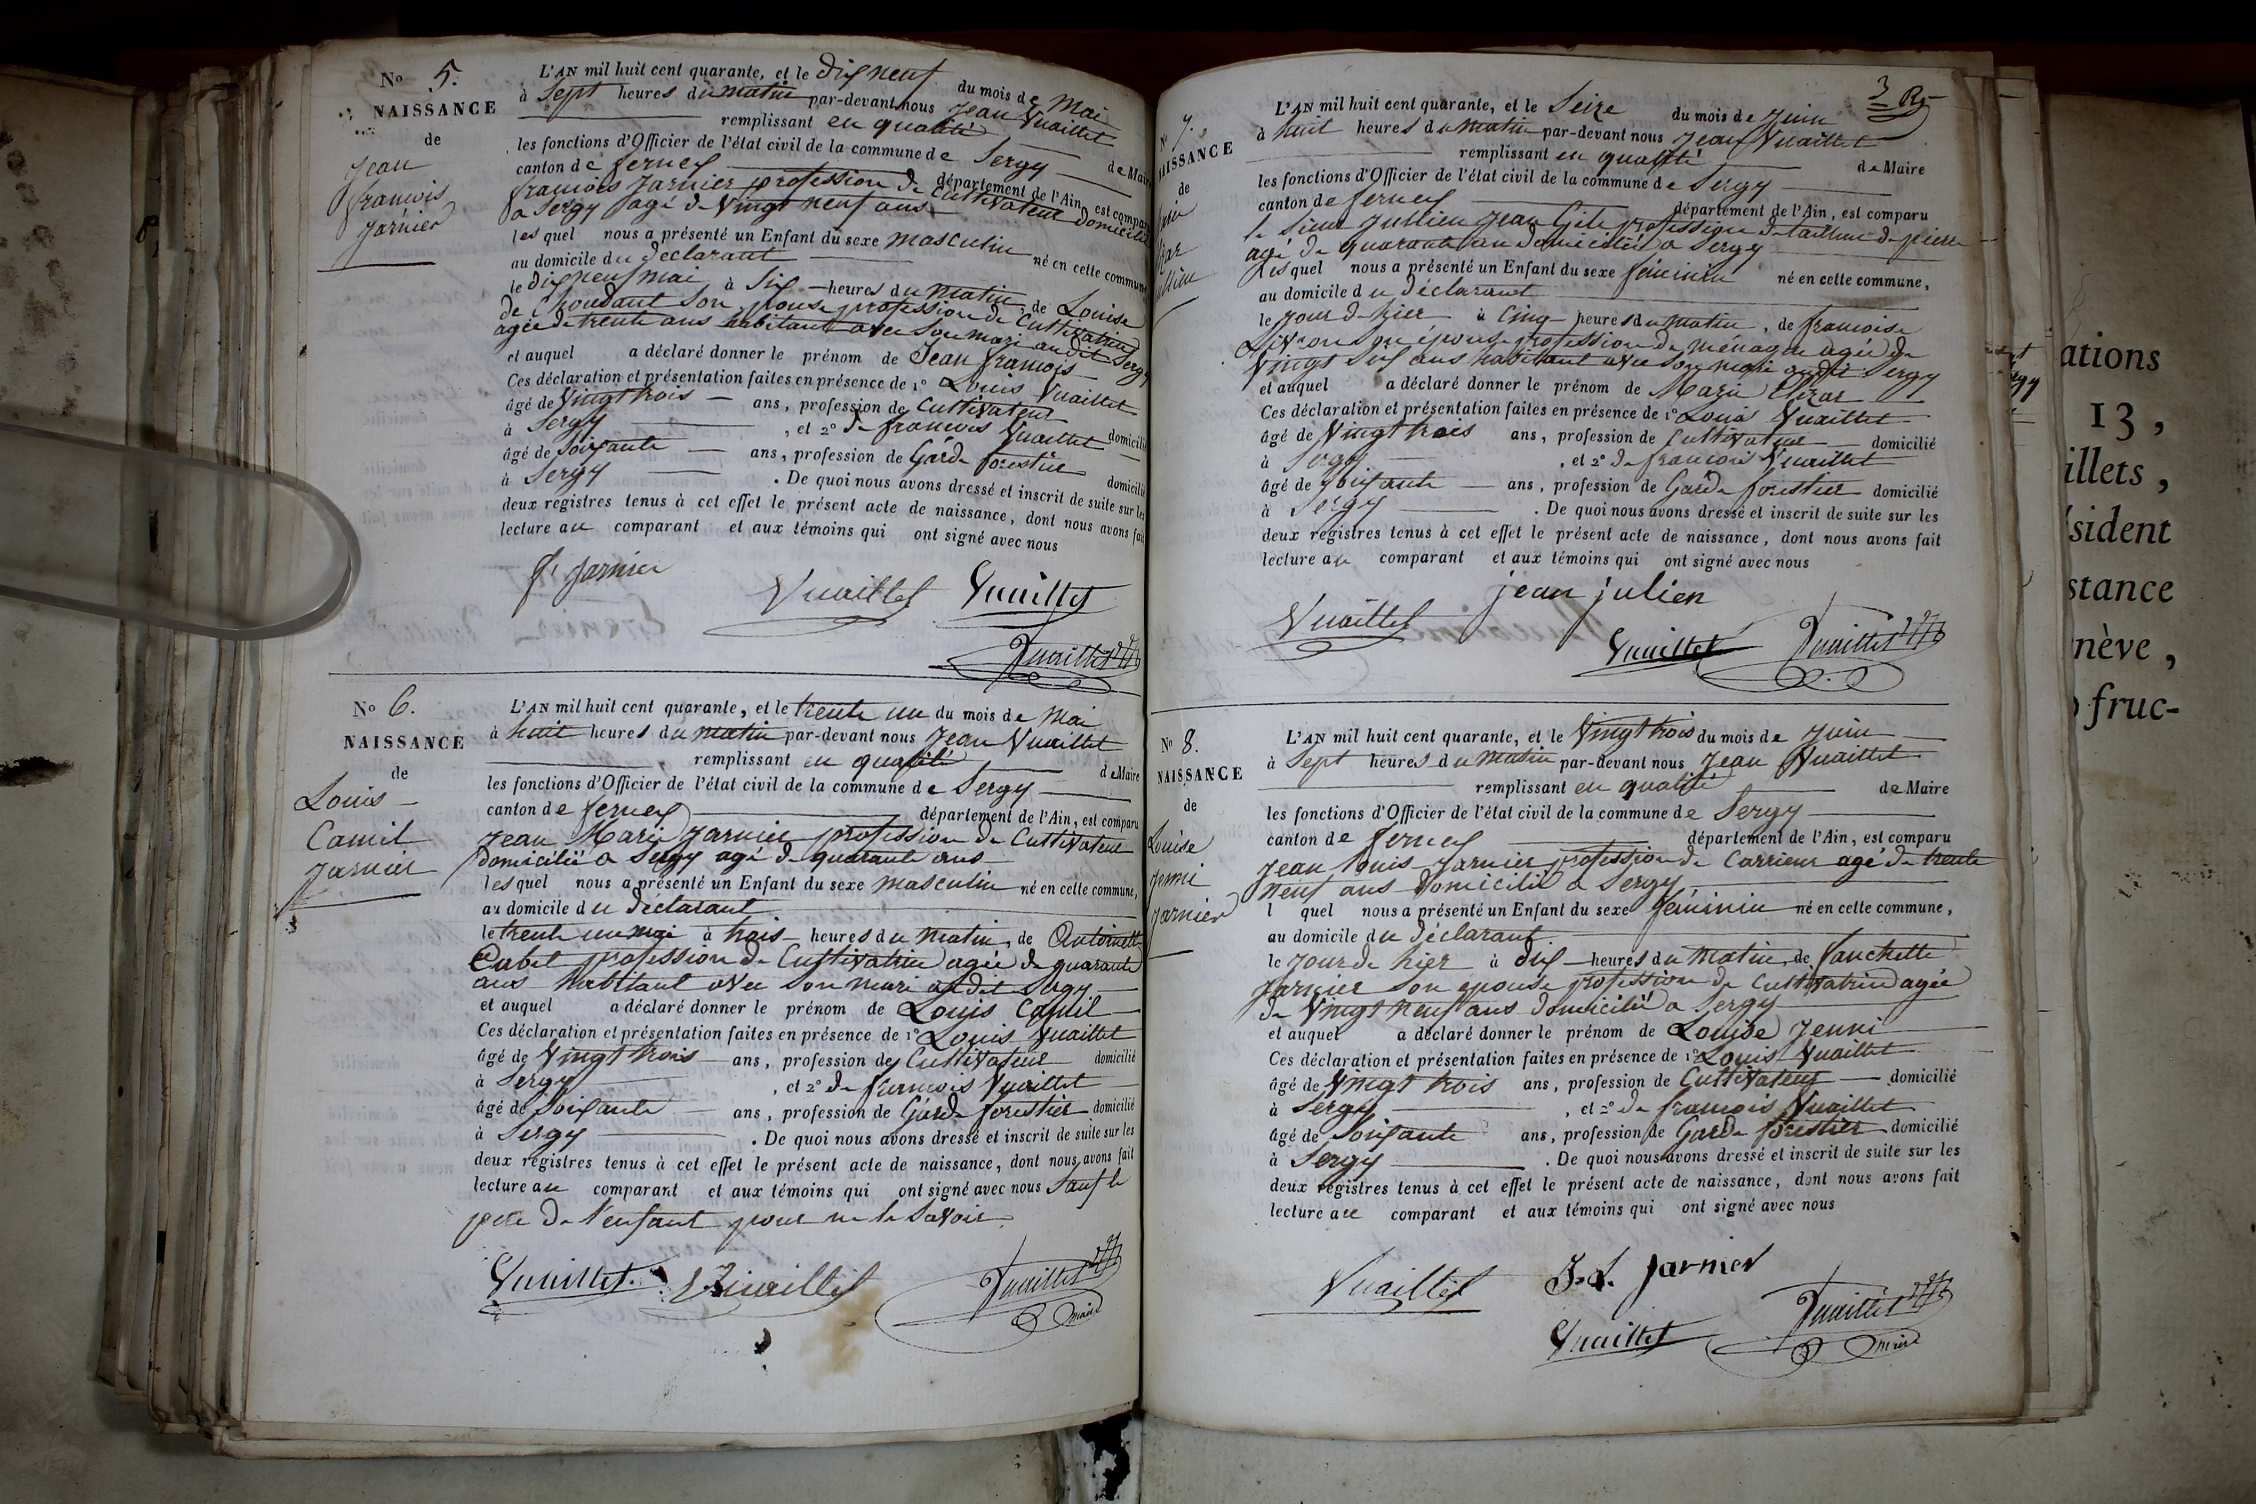 No 5.
NAISSANCE
de
Jean
francois
Jarnier
L'AN mil huit cent quarante, et le dix neuf du mois de Mai
à Sept heures du matin par-devant nous Jean Vuaillet
remplissant en qualité de Maire
les fonctions d'Officier de l'état civil de la commune de Sergy
canton de ferney département de l'Ain, est comparu
francois Jarnier profession de Cultivateur domicilié
a Sergy agé de Vingt neuf ans
lesquel nous a présenté un Enfant du sexe masculin né en cette commune
au domicile du declarant
le dix neuf mai à Six heures du matin, de Louise
de Choudant Son epouse profession de Cultivatrice
agée de trente ans habitant avec Son mari au dit Sergy
et auquel a déclaré donner le prénom de Jean francois
Ces déclaration et présentation faites en présence de 1º Louis Vuaillet
âgé de Vingt trois ans, profession de Cultivateur
à Sergy , et 2º de francois Vuaillet domicilié
âgé de Soixante ans, profession de Garde forestier
à Sergy . De quoi nous avons dressé et inscrit de suite sur les domicilié
deux registres tenus à cet effet le présent acte de naissance, dont nous avons fait
lecture au comparant et aux témoins qui ont signé avec nous
fs Jarnier
Vuaillet Vuaillet
Vuaillet
No 6.
NAISSANCE
de
Louis
Camil
Jarnier
L'AN mil huit cent quarante, et le trente un du mois de Mai
à huit heures du matin par-devant nous Jean Vuaillet
remplissant en qualité de Maire
les fonctions d'Officier de l'état civil de la commune de Sergy
canton de ferney département de l'Ain, est comparu
Jean Marie Jarnier profession de Cultivateur
domicilié a Sergy agé de quarante ans
lesquel nous a présenté un Enfant du sexe masculin né en cette commune,
au domicile du declarant
le trente un mai à trois heures du matin, de Antoinette
Cubet profession de Cultivatrice agée de quarante
ans habitant avec Son mari audit Sergy
et auquel a déclaré donner le prénom de Louis Camil
Ces déclaration et présentation faites en présence de 1º Louis Vuaillet
âgé de Vingt trois ans, profession de Cultivateur domicilié
à Sergy , et 2º de francois Vuaillet
âgé de Soixante ans, profession de Garde forestier domicilié
à Sergy . De quoi nous avons dressé et inscrit de suite sur les
deux registres tenus à cet effet le présent acte de naissance, dont nous avons fait
lecture au comparant et aux témoins qui ont signé avec nous Sauf le
pere de l'enfant pour ne le Savoir
Vuaillet Vuaillet Vuaillet
maire
3 R
No 7.
NAISSANCE
de
L'AN mil huit cent quarante, et le Seize du mois de Juin
à huit heures du matin par-devant nous Jean Vuaillet
remplissant en qualité de Maire
les fonctions d'Officier de l'état civil de la commune de Sergy
canton de ferney département de l'Ain, est comparu
le Sieur Jullien Jean profession de tailleur de pierre
agé de quarante domicilié a Sergy
lesquel nous a présenté un Enfant du sexe féminin né en cette commune,
au domicile du déclarant
le jour d'hier à Cinq heures du matin, de francoise
épouse profession de ménagere agée de
Vingt Six ans habitant avec Son mari audit Sergy
et auquel a déclaré donner le prénom de Marie
Ces déclaration et présentation faites en présence de 1º Louis Vuaillet
âgé de Vingt trois ans, profession de Cultivateur domicilié
à Sergy , et 2º de francois Vuaillet
âgé de Soixante ans, profession de Garde forestier domicilié
à Sergy . De quoi nous avons dressé et inscrit de suite sur les
deux registres tenus à cet effet le présent acte de naissance, dont nous avons fait
lecture au comparant et aux témoins qui ont signé avec nous
jean julien
Vuaillet
Vuaillet Vuaillet
No 8.
NAISSANCE
de
Louise
Jenni
Jarnier
L'AN mil huit cent quarante, et le Vingt trois du mois de Juin
à Sept heures du matin par-devant nous Jean Vuaillet
remplissant en qualité de Maire
les fonctions d'Officier de l'état civil de la commune de Sergy
canton de ferney département de l'Ain, est comparu
Jean Louis Jarnier profession de Carrieur agé de trente
neuf ans domicilié a Sergy
l quel nous a présenté un Enfant du sexe féminin né en cette commune,
au domicile du déclarant
le jour de hier à dix heures du matin, de fanchette
Jarnier Son epouse profession de Cultivatrice agée
de Vingt neuf ans domicilié a Sergy
et auquel a déclaré donner le prénom de Louise Jenni
Ces déclaration et présentation faites en présence de 1º Louis Vuaillet
âgé de Vingt trois ans, profession de Cultivateur domicilié
à Sergy , et 2º de francois Vuaillet
âgé de Soixante ans, profession de Garde forestier domicilié
à Sergy . De quoi nous avons dressé et inscrit de suite sur les
deux registres tenus à cet effet le présent acte de naissance, dont nous avons fait
lecture au comparant et aux témoins qui ont signé avec nous
J.L. Jarnier
Vuaillet Vuaillet
Vuaillet maire
ations
13,
illets,
sident
stance
nève,
fruc-